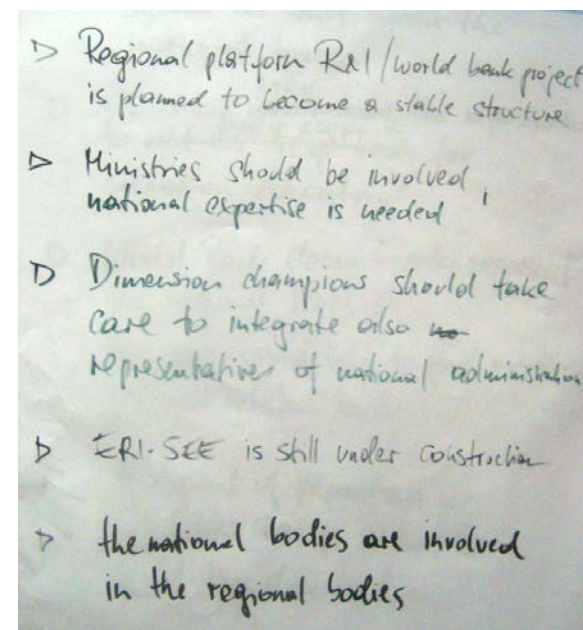 ▷ Regional platform R&I/world bank project
is planned to become a stable structure
▷ Ministries should be involved,
national expertise is needed
▷ Dimension champions should take
care to integrate also
representatives of national administration
▷ ERI-SEE is still under construction
▷ the national bodies are involved
in the regional bodies